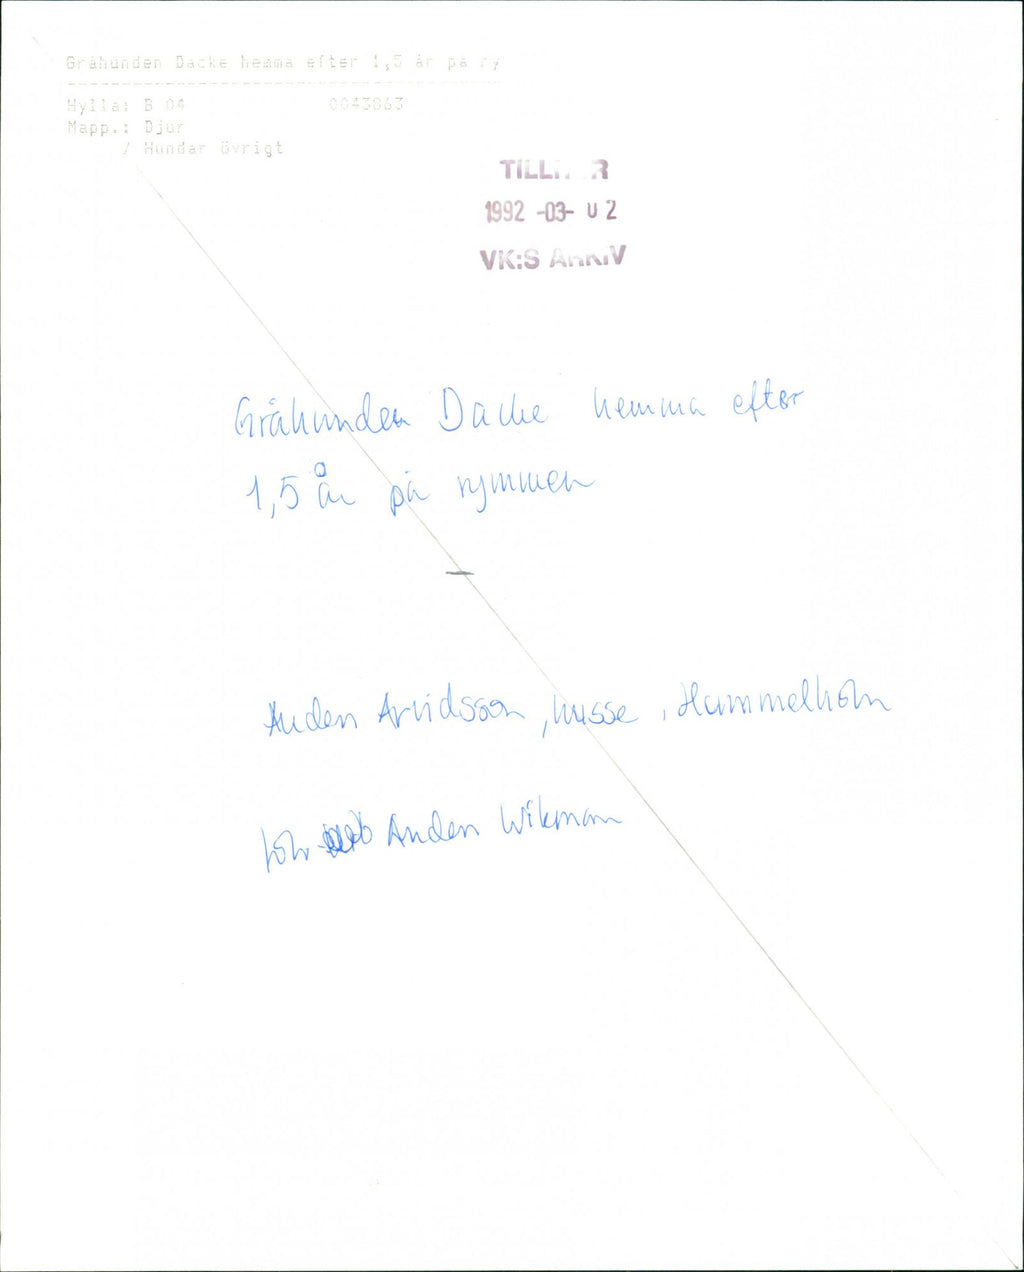 Gråhunden Dacke hemma efter 1,5 år på ry
Hylla: B 04 0043863
Mapp.: Djur
/ Hundar övrigt
TILLHÖR
1992 -03- 02
VK:S ARKIV
Gråhunden Dacke hemma efter
1,5 år på rymmen
Anders Arvidsson, husse, Hammelholm
Anders Wikman